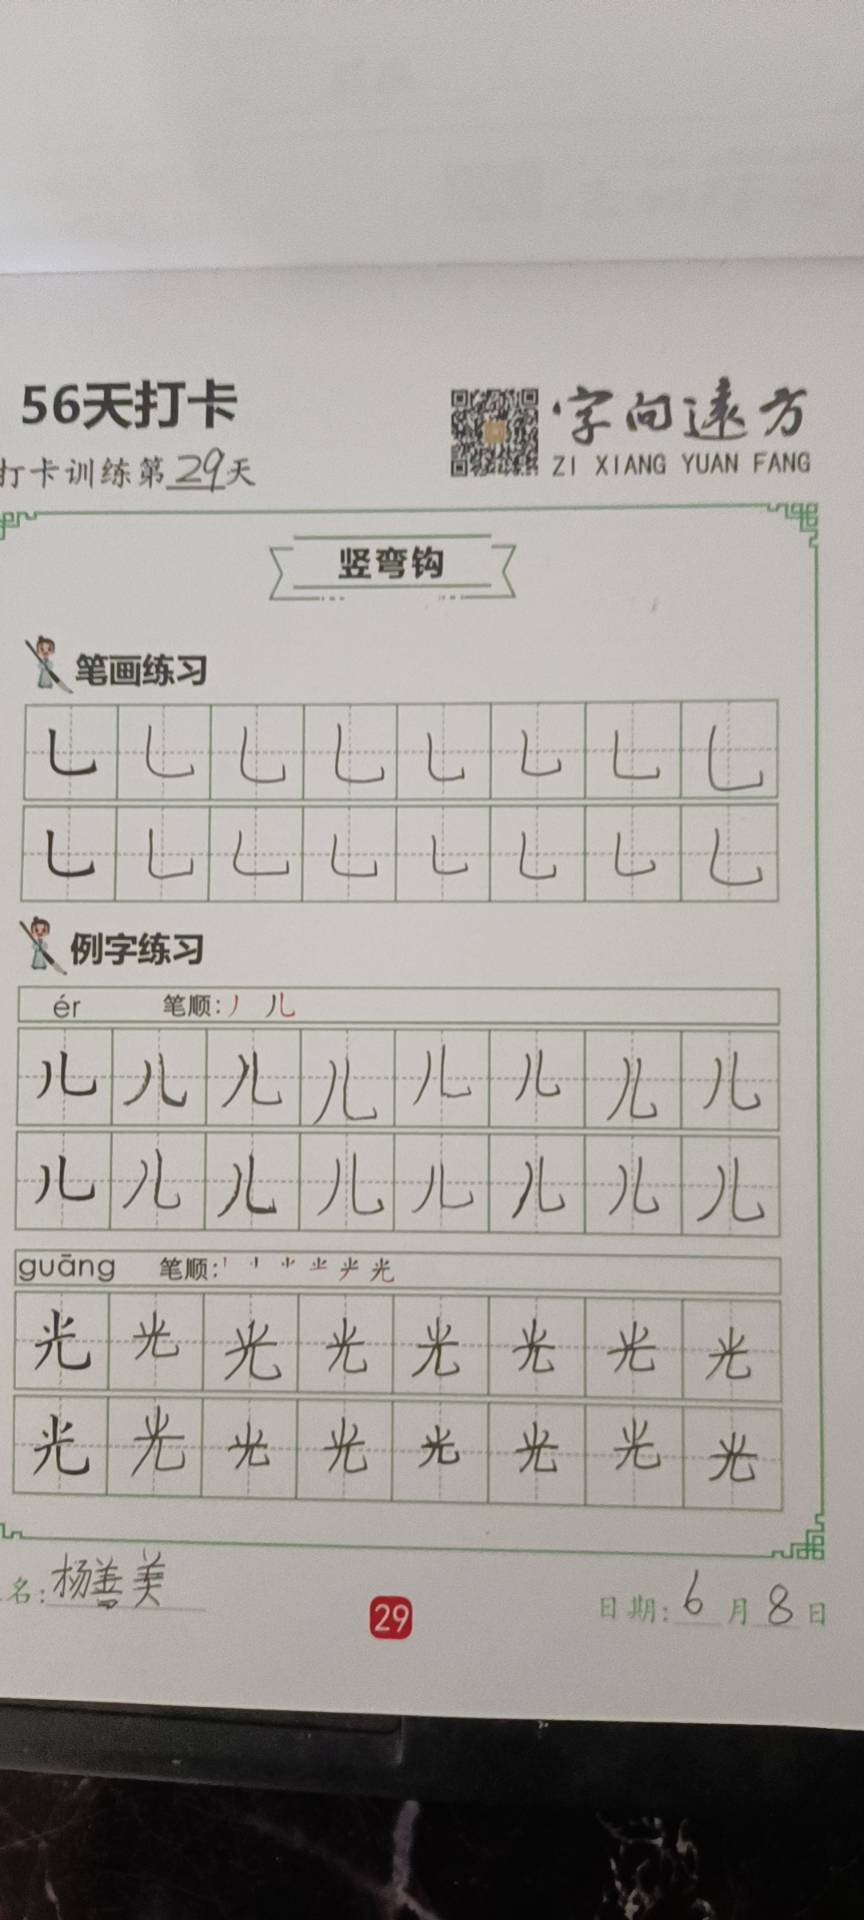 56天打卡
字向遠方
打卡训练第29天
ZI XIANG YUAN FANG
竖弯钩
笔画练习
乚 乚 乚 乚 乚 乚 乚 乚
乚 乚 乚 乚 乚 乚 乚 乚
例字练习
ér 笔顺:丿 儿
儿 儿 儿 儿 儿 儿 儿 儿
儿 儿 儿 儿 儿 儿 儿 儿
guāng 笔顺: 光
光 光 光 光 光 光 光 光
光 光 光 光 光 光 光 光
名:杨善美
29
日期:6月8日